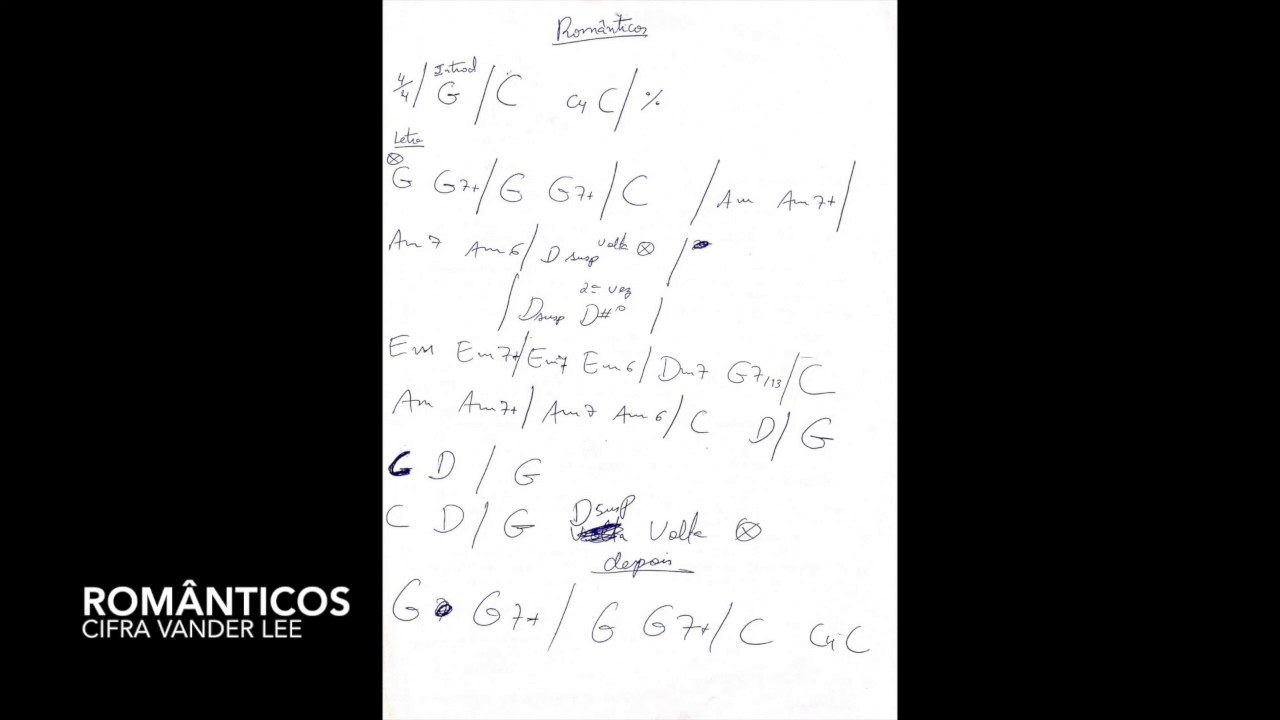 Românticos
Introd
4/4 / G / C C4 C / %
Letra
⊗
G G7+ / G G7+ / C / Am Am7+ /
Am7 Am6 / Dsusp volta ⊗ /
2ª vez
/ Dsusp D#º /
Em Em7+ / Em7 Em6 / Dm7 G7/13 / C
Am Am7+ / Am7 Am6 / C D / G
C D / G
C D / G Dsusp
Volta ⊗
depois
G G7+ / G G7+ / C C4 C
ROMÂNTICOS
CIFRA VANDER LEE